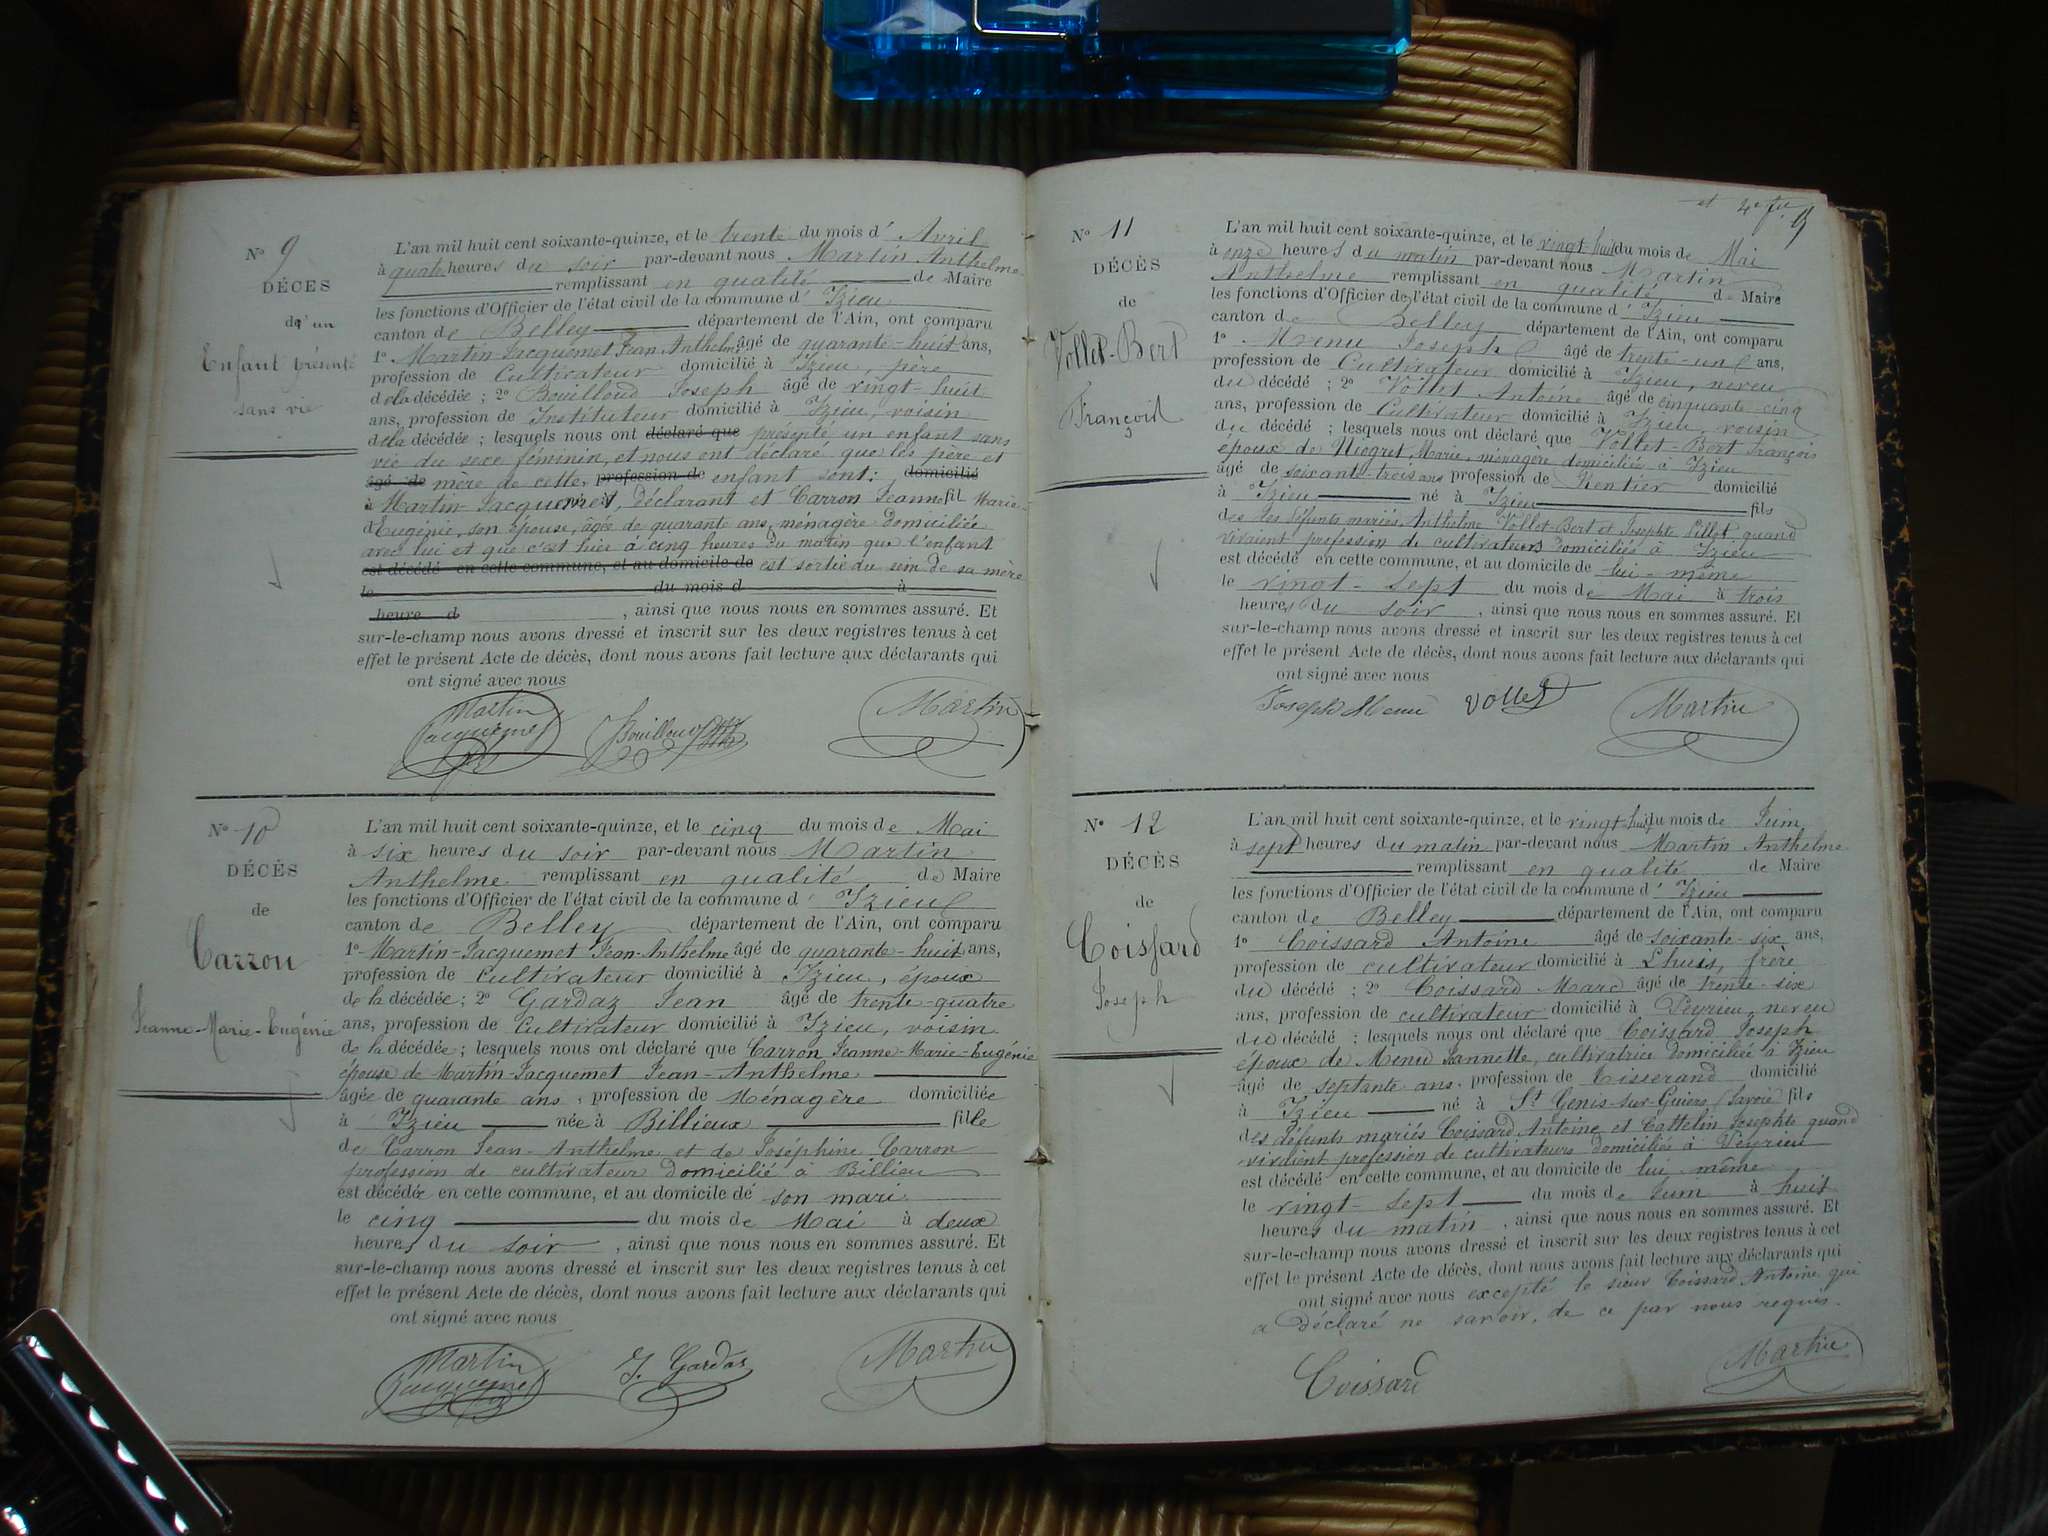 N° 9
DÉCES
de d'un
Enfant présenté
sans vie
L'an mil huit cent soixante-quinze, et le trente du mois d' Avril
à quatre heures du soir par-devant nous Martin Anthelme
remplissant en qualité de Maire
les fonctions d'Officier de l'état civil de la commune d' Izieu
canton de Belley département de l'Ain, ont comparu
1° Martin-Jacquemet Jean-Anthelme âgé de quarante-huit ans,
profession de Cultivateur domicilié à Izieu, père
de la décédée ; 2° Bouilloud Joseph âgé de vingt-huit
ans, profession de Instituteur domicilié à Izieu, voisin
de la décédée ; lesquels nous ont déclaré que présenté un enfant sans
vie du sexe féminin, et nous ont déclaré que les père et
âgé de mère de cette profession de enfant sont: domicilié
à Martin-Jacquemet, déclarant et Carron Jeanne fil Marie-
d'Eugénie, son épouse, âgée de quarante ans, ménagère domiciliée
avec lui et que c'est hier à cinq heures du matin que l'enfant
est décédé en cette commune, et au domicile de est sortie du sein de sa mère
le du mois d à
heure d , ainsi que nous nous en sommes assuré. Et
sur-le-champ nous avons dressé et inscrit sur les deux registres tenus à cet
effet le présent Acte de décès, dont nous avons fait lecture aux déclarants qui
ont signé avec nous
Martin Jacquemet Bouilloud Martin
N° 10
DÉCÈS
de
Carron
Jeanne-Marie-Eugénie
L'an mil huit cent soixante-quinze, et le cinq du mois de Mai
à six heures du soir par-devant nous Martin
Anthelme remplissant en qualité de Maire
les fonctions d'Officier de l'état civil de la commune d' Izieu
canton de Belley département de l'Ain, ont comparu
1° Martin-Jacquemet Jean-Anthelme âgé de quarante-huit ans,
profession de cultivateur domicilié à Izieu, époux
de la décédée ; 2° Gardaz Jean âgé de trente-quatre
ans, profession de Cultivateur domicilié à Izieu, voisin
de la décédée ; lesquels nous ont déclaré que Carron Jeanne-Marie-Eugénie
épouse de Martin-Jacquemet Jean-Anthelme
âgée de quarante ans, profession de Ménagère domiciliée
à Izieu née à Billieux fille
de Carron Jean-Anthelme et de Joséphine Carron
profession de cultivateur domicilié à Billieu
est décédée en cette commune, et au domicile de son mari
le cinq du mois de Mai à deux
heures du soir , ainsi que nous nous en sommes assuré. Et
sur-le-champ nous avons dressé et inscrit sur les deux registres tenus à cet
effet le présent Acte de décès, dont nous avons fait lecture aux déclarants qui
ont signé avec nous
Martin Jacquemet J. Gardaz Martin
N° 11
DÉCÈS
de
Vollet-Bert
François
L'an mil huit cent soixante-quinze, et le vingt-huit du mois de Mai
à onze heures du matin par-devant nous Martin
Anthelme remplissant en qualité de Maire
les fonctions d'Officier de l'état civil de la commune d' Izieu
canton de Belley département de l'Ain, ont comparu
1° Menu Joseph âgé de trente-un ans,
profession de Cultivateur domicilié à Izieu, neveu
du décédé ; 2° Vollet Antoine âgé de cinquante-cinq
ans, profession de Cultivateur domicilié à Izieu, voisin
du décédé ; lesquels nous ont déclaré que Vollet-Bert François
époux de Marie, ménagère domiciliée à Izieu
âgé de soixante-trois ans profession de Rentier domicilié
à Izieu né à Izieu fils
des défunts mariés Anthelme Vollet-Bert et Josephte Pillot, quand
vivaient profession de cultivateurs domiciliés à Izieu
est décédé en cette commune, et au domicile de lui-même
le vingt-sept du mois de Mai à trois
heures du soir , ainsi que nous nous en sommes assuré. Et
sur-le-champ nous avons dressé et inscrit sur les deux registres tenus à cet
effet le présent Acte de décès, dont nous avons fait lecture aux déclarants qui
ont signé avec nous
Joseph Menu Vollet Martin
N° 12
DÉCÈS
de
Coissard
Joseph
L'an mil huit cent soixante-quinze, et le vingt-huit du mois de Juin
à sept heures du matin par-devant nous Martin Anthelme
remplissant en qualité de Maire
les fonctions d'Officier de l'état civil de la commune d' Izieu
canton de Belley département de l'Ain, ont comparu
1° Coissard Antoine âgé de soixante-six ans,
profession de cultivateur domicilié à Lhuis, frère
du décédé ; 2° Coissard Marc âgé de trente-six
ans, profession de cultivateur domicilié à Peyrieu, neveu
du décédé ; lesquels nous ont déclaré que Coissard Joseph
époux de Menu Jannette, cultivatrice domiciliée à Izieu
âgé de septante ans, profession de Tisserand domicilié
à Izieu né à St Genis-sur-Guiers (Savoie) fils
des défunts mariés Coissard Antoine et Cattelin Josephte quand
vivaient profession de cultivateurs domiciliés à Peyrieu
est décédé en cette commune, et au domicile de lui-même
le vingt-sept du mois de Juin à huit
heures du matin , ainsi que nous nous en sommes assuré. Et
sur-le-champ nous avons dressé et inscrit sur les deux registres tenus à cet
effet le présent Acte de décès, dont nous avons fait lecture aux déclarants qui
ont signé avec nous excepté le sieur Coissard Antoine qui
a déclaré ne savoir, de ce par nous requis.
Coissard Martin